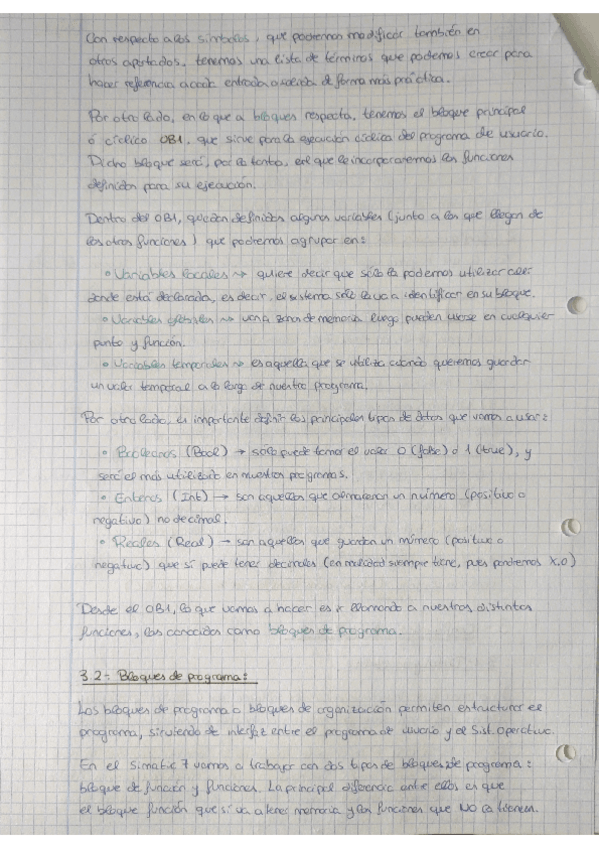 Con respecto a los símbolos, que podremos modificar también en
otros apartados, tenemos una lista de términos que podemos crear para
hacer referencia a cada entrada o salida de forma más práctica.
Por otro lado, en lo que a bloques respecta, tenemos el bloque principal
ó cíclico OB1, que sirve para la ejecución cíclica del programa de usuario.
Dicho bloque será, por lo tanto, en el que le incorporaremos las funciones
definidas para su ejecución.
Dentro del OB1, quedan definidas algunas variables (junto a las que llegan de
las otras funciones) que podremos agrupar en:
• Variables locales → quiere decir que sólo la podemos utilizar allí
donde está declarada, es decir, el sistema sólo la va a identificar en su bloque.
• Variables globales → una zona de memoria luego pueden usarse en cualquier
punto y función.
• Variables temporales → es aquella que se utiliza cuando queremos guardar
un valor temporal a lo largo de nuestro programa.
Por otro lado, es importante definir los principales tipos de datos que vamos a usar:
• Booleanos (Bool) → solo puede tomar el valor 0 (false) ó 1 (true), y
será el más utilizado en nuestros programas.
• Enteros (Int) → son aquellos que almacenan un número (positivo o
negativo) no decimal.
• Reales (Real) → son aquellos que guardan un número (positivo o
negativo) que sí puede tener decimales (en realidad siempre tiene, pues pondremos X,0)
Desde el OB1, lo que vamos a hacer es ir llamando a nuestras distintas
funciones, las conocidas como bloques de programa.
3.2- Bloques de programa:
Los bloques de programa o bloques de organización permiten estructurar el
programa, sirviendo de interfaz entre el programa de usuario y el Sist. Operativo.
En el Simatic 7 vamos a trabajar con dos tipos de bloques de programa:
bloque de función y funciones. La principal diferencia entre ellos es que
el bloque función que sí va a tener memoria y las funciones que NO la tienen.